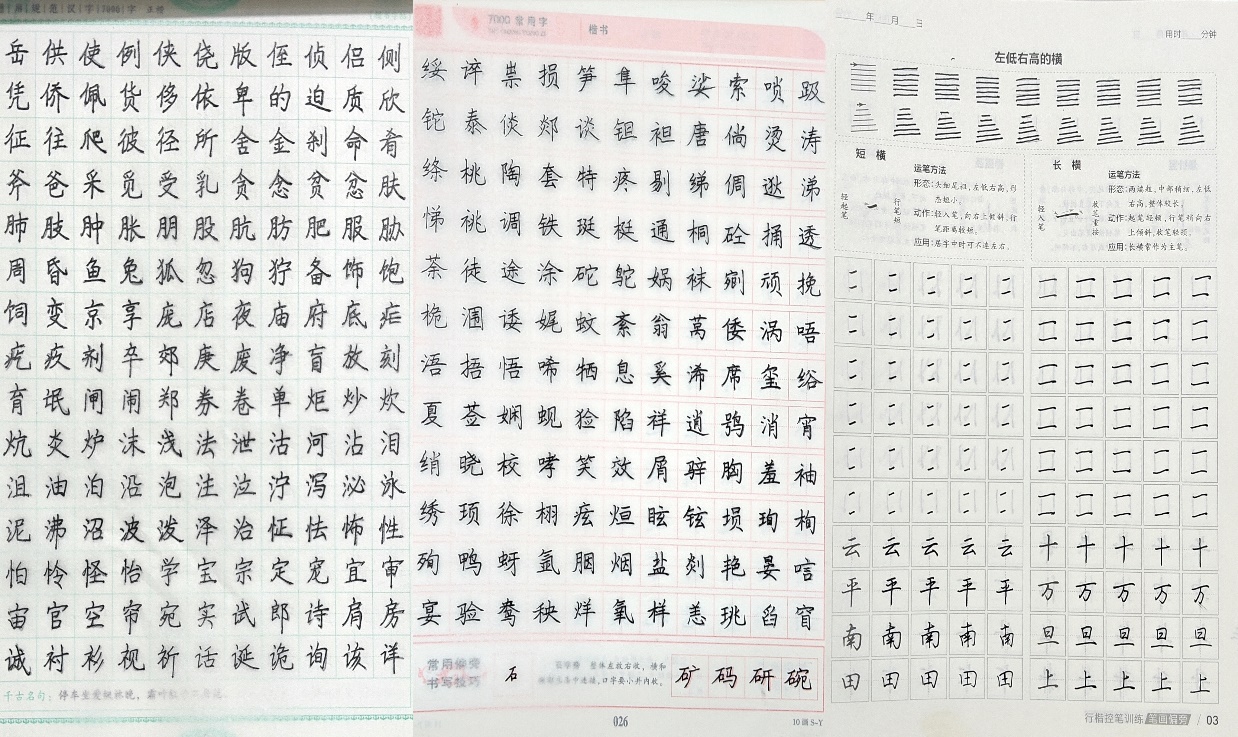 岳供使例侠侥版侄侦侣侧
凭侨佩货侈依卑的迫质欣
征往爬彼径所舍金刹命肴
斧爸采觅受乳贪念贫忿肤
肺肢肿胀朋股肮肪肥服胁
周昏鱼兔狐忽狗狞备饰饱
饲变京享庞店夜庙府底疟
疙疚剂卒郊庚废净盲放刻
育氓闸闹郑券卷单炬炒炊
炕炎炉沫浅法泄沽河沾泪
沮油泊沿泡注泣泞泻泌泳
泥沸沼波泼泽治怔怯怖性
怕怜怪怡学宝宗定宠宜审
宙官空帘宛实试郎诗肩房
诚衬衫视祈话诞诡询该详
千古名句：停车坐爱枫林晚，
7000 常用字 楷书
绥谇祟损笋隼唆娑索唢趿
铊泰倓郯谈钽袒唐倘烫涛
绦桃陶套特疼剔绨倜逖涕
悌祧调铁珽梃通桐砼捅透
荼徒途涂砣鸵娲袜剜顽挽
桅涠诿娓蚊紊翁莴倭涡唔
浯捂悟唏牺息奚浠席玺绤
夏莶娴蚬猃陷祥逍鸮消宵
绡晓校哮笑效屑骍胸羞袖
绣顼徐栩痃烜眩铉埙珣栒
殉鸭蚜氩胭烟盐剡艳晏唁
宴验鸯秧烊氧样恙珧舀窅
常用偏旁
书写技巧
石
矿码研碗
026
10画 S-Y
年 月 日
用时 分钟
左低右高的横
短 横
轻起笔
行笔短
运笔方法
形态：大细尾粗，左低右高，形态短小。
动作：轻入笔，向右上倾斜，行笔距离较短。
应用：居字中时可不连左右。
长 横
轻入笔
收笔重按
运笔方法
形态：两端粗，中部稍细，左低右高，整体较长。
动作：起笔轻顿，行笔稍向右上倾斜，收笔轻顿。
应用：长横常作为主笔。
二 二 二 二 二 二 二 二 二 二
二 二 二 二 二 二 二 二 二 二
二 二 二 二 二 二 二 二 二 二
二 二 二 二 二 二 二 二 二 二
二 二 二 二 二 二 二 二 二 二
二 二 二 二 二 二 二 二 二 二
云 云 云 云 云 十 十 十 十 十
平 平 平 平 平 万 万 万 万 万
南 南 南 南 南 旦 旦 旦 旦 旦
田 田 田 田 田 上 上 上 上 上
行楷控笔训练 笔画偏旁 / 03